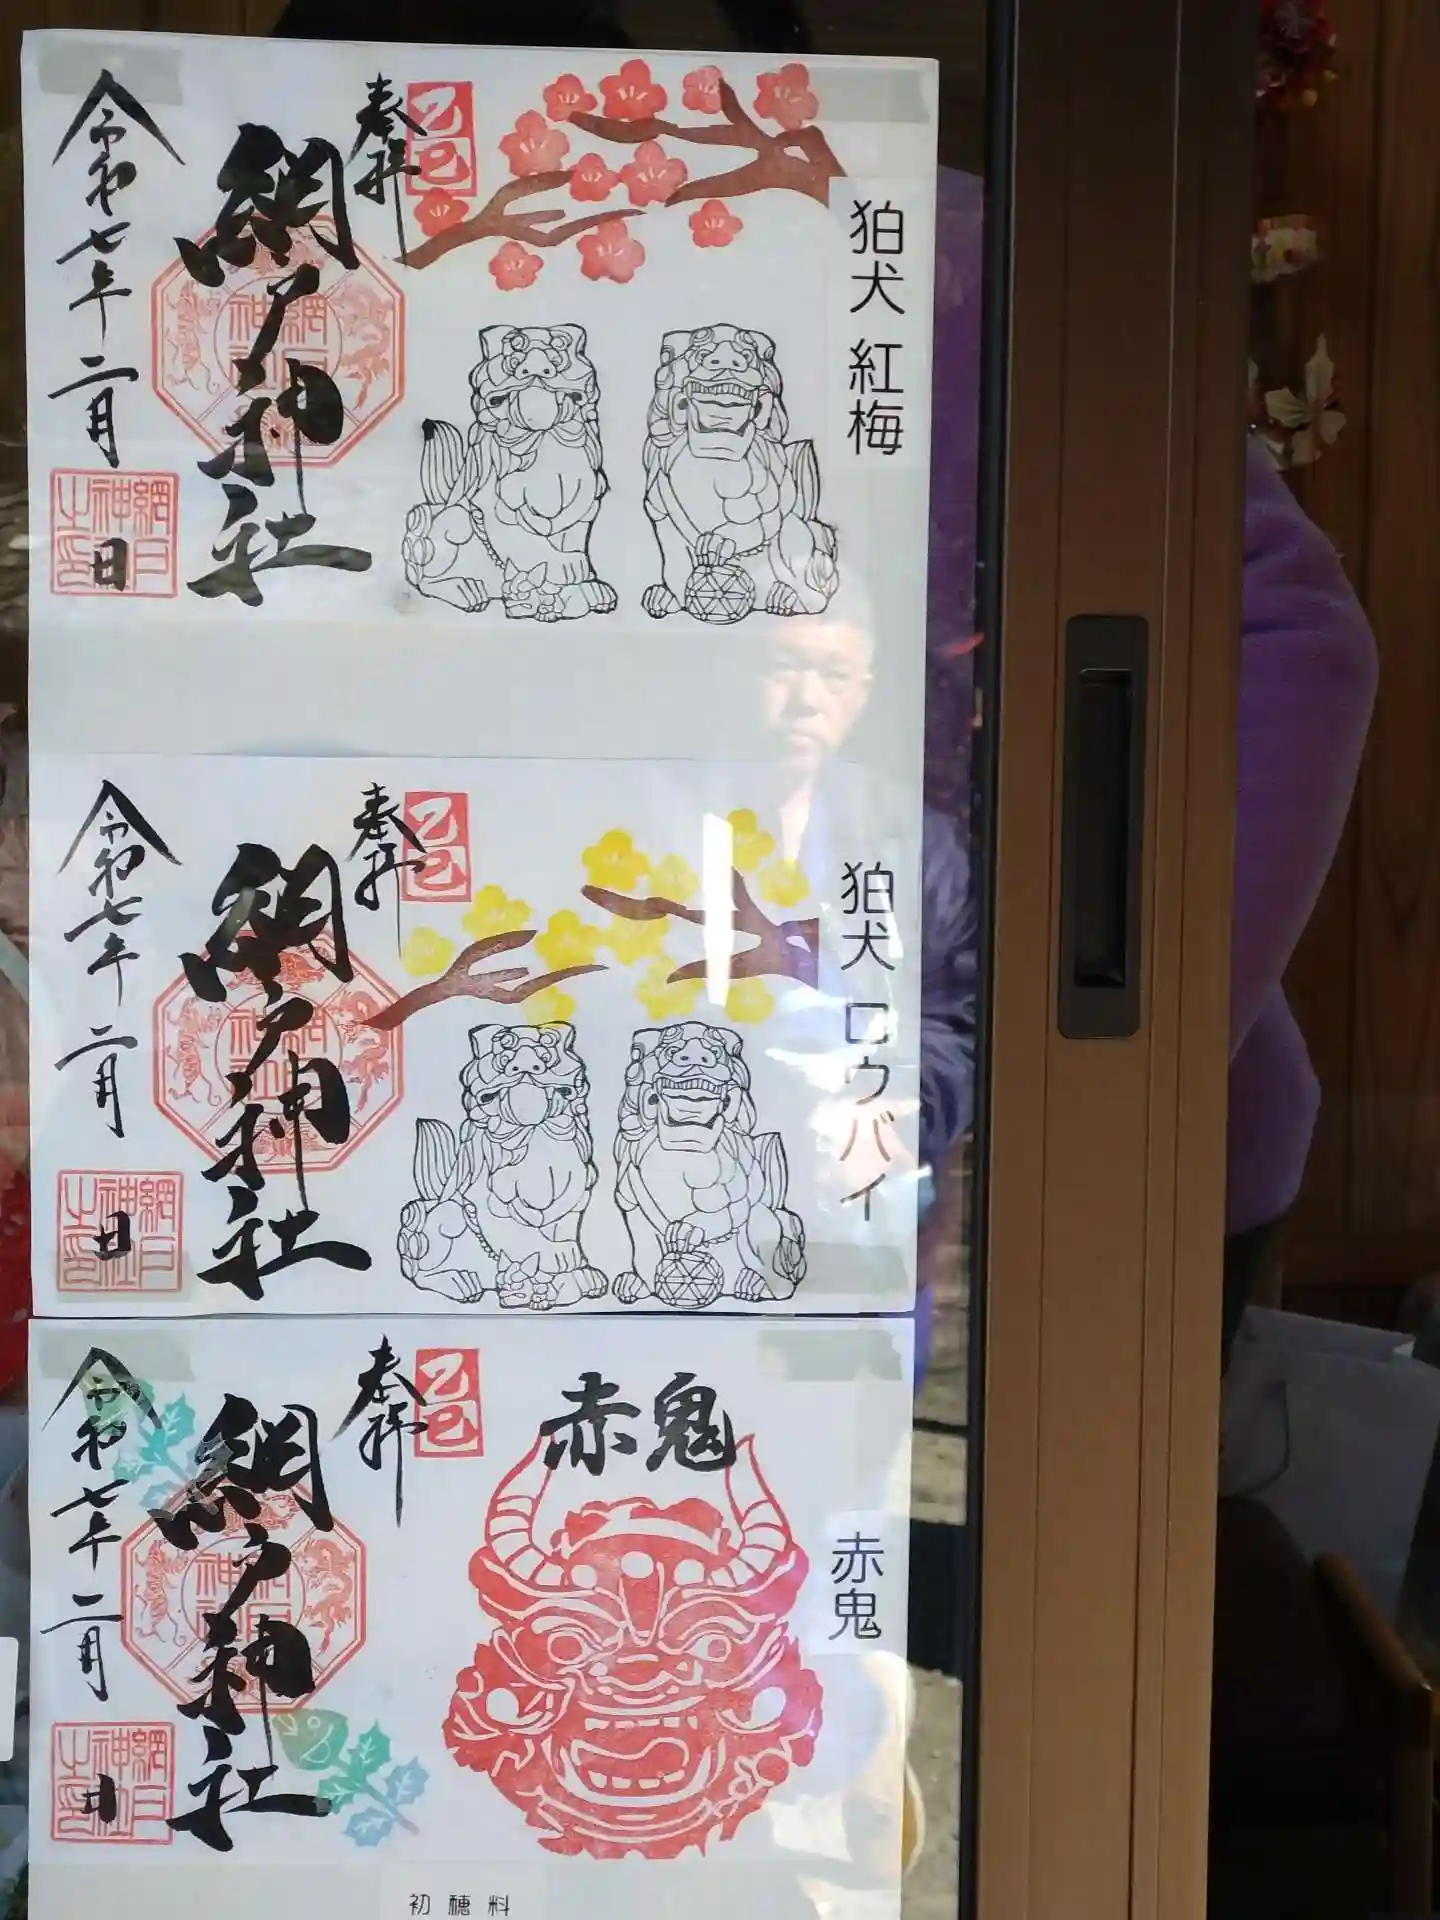 奉拝
乙巳
網戸神社
令和七年二月
日
網戸神社
網戸神社之印
狛犬 紅梅
奉拝
乙巳
網戸神社
令和七年二月
日
網戸神社
網戸神社之印
狛犬 ロウバイ
奉拝
乙巳
赤鬼
網戸神社
令和七年二月
日
網戸神社
網戸神社之印
赤鬼
初穂料